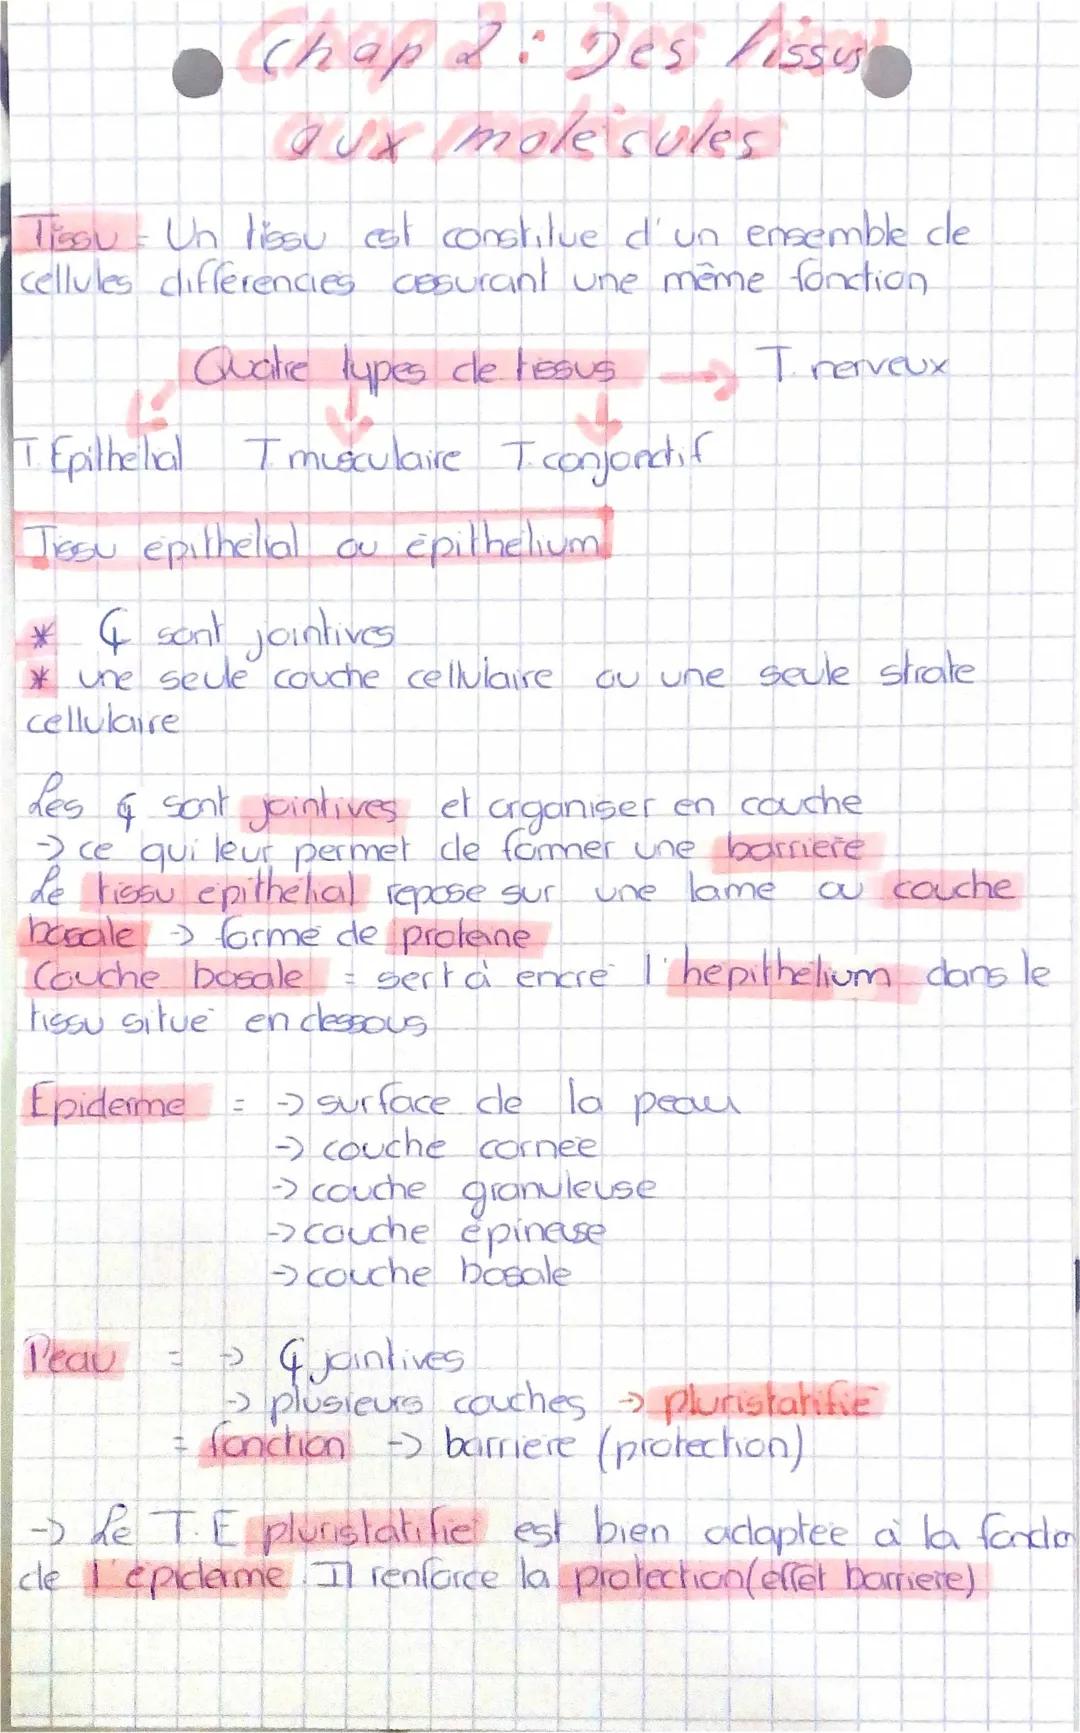 Chap 2 : Des tissus
aux molécules
Tissu = Un tissu est constitué d'un ensemble de
cellules différencies assurant une même fonction
Quatre types de tissus → T. nerveux
T. Epithelial T musculaire T. conjonctif
Tissu épithelial ou épithelium
* ₵ sont jointives
* une seule couche cellulaire ou une seule strate
cellulaire
Les ₵ sont jointives et organiser en couche
→ ce qui leur permet de former une barrière
Le tissu épithélial repose sur une lame ou couche
basale → forme de proteine
Couche basale = sert à encré l'hepithelium dans le
tissu situé en dessous
Epiderme = → surface de la peau
→ couche cornée
→ couche granuleuse
→ couche épineuse
→ couche basale
Peau = → ₵ jointives
→ plusieurs couches → pluristatifié
= fonction → barriere (protection)
→ Le T.E pluristatifié est bien adaptée à la fonction
de l'épiderme. Il renforce la protection (effet barriere)